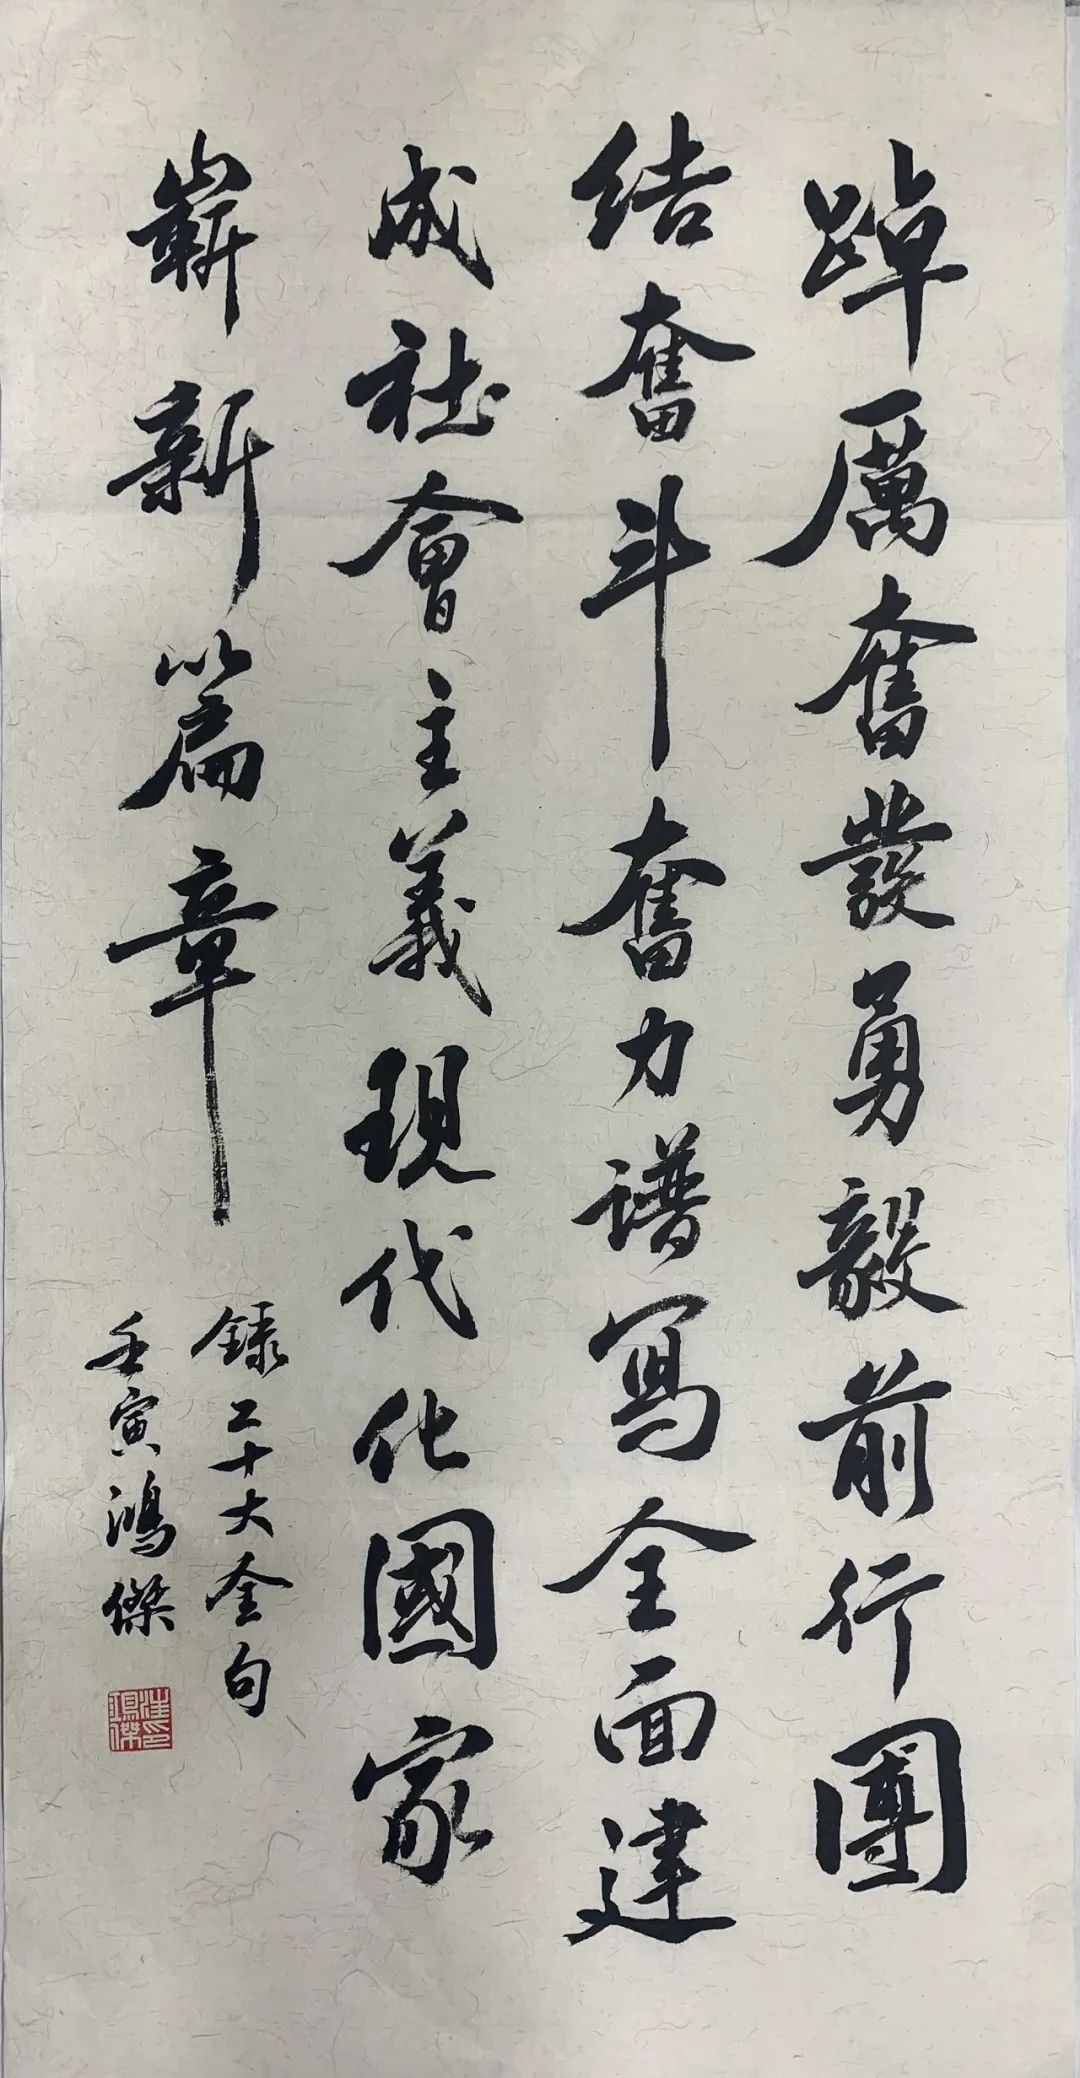 踔厲奮發勇毅前行團
结奮斗奮力譜寫全面建
成社會主義現代化國家
嶄新篇章
錄二十大金句
壬寅鴻傑